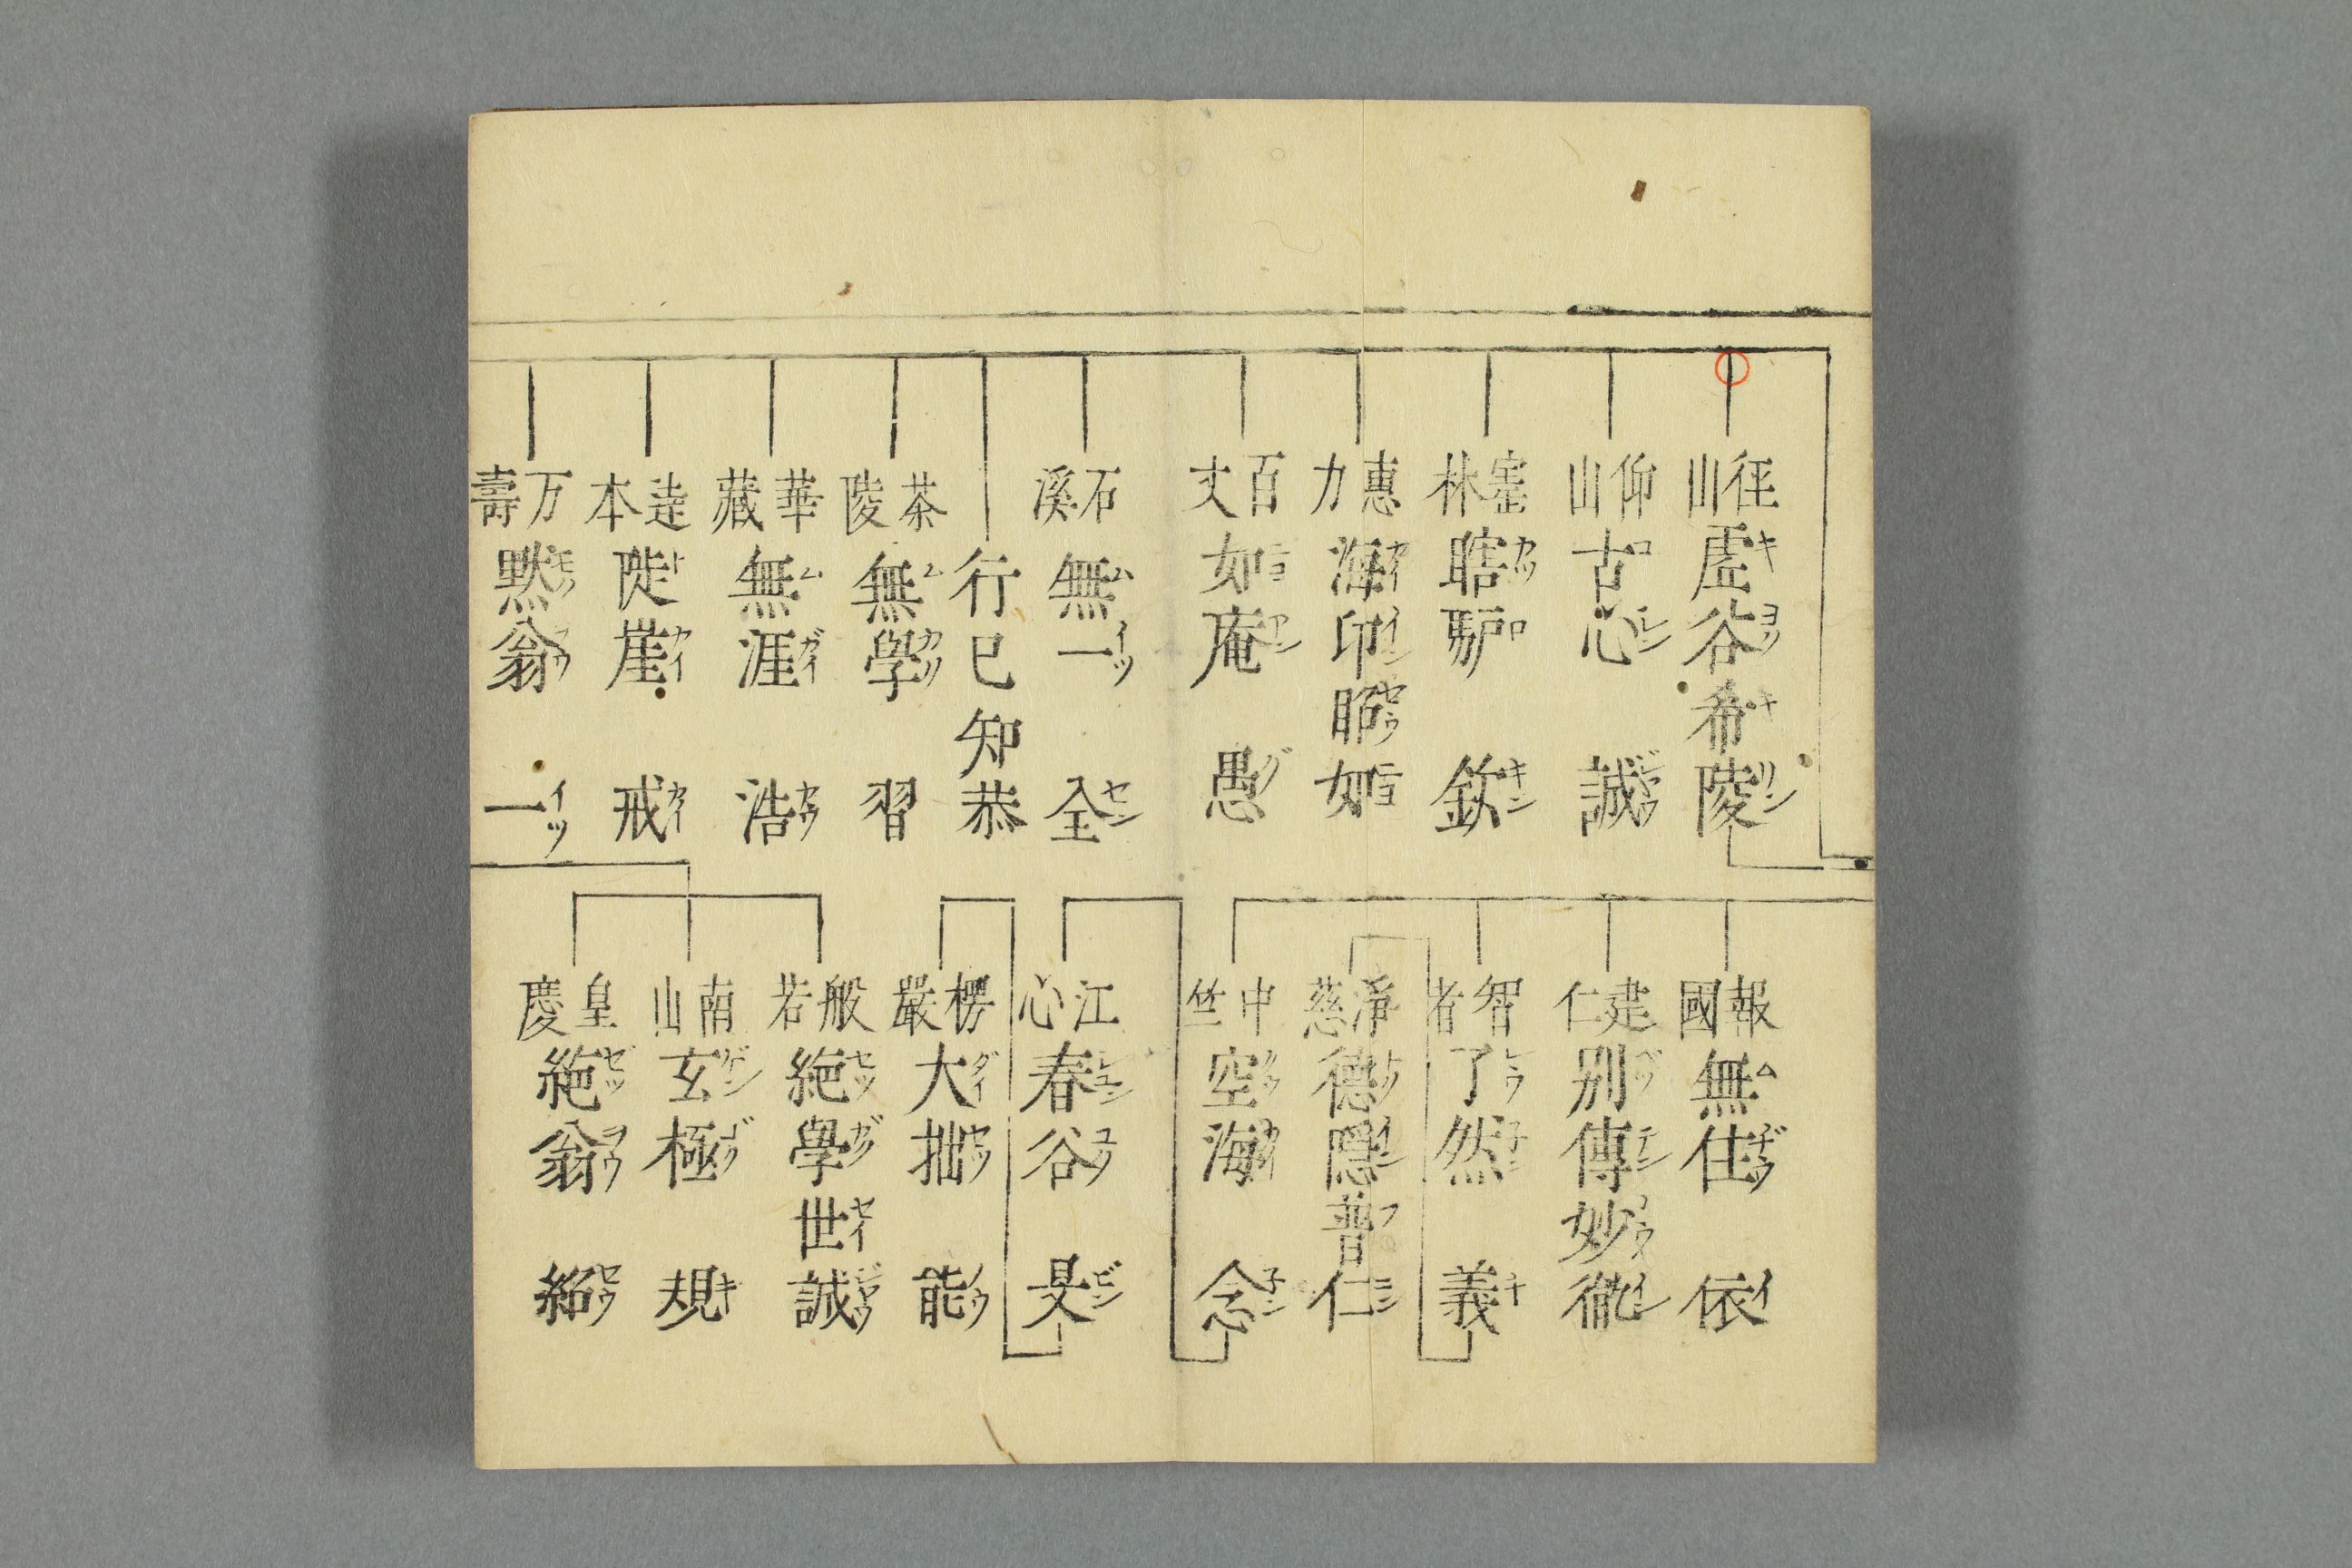 徑山虛谷希陵
仰山古心誠
霊林瞎驴欽
惠力海印昭如
百丈如庵愚
石溪無一全
行已知恭
茶陵無學習
華藏無涯浩
達本陡崖戒
万壽黙翁一
報國無住依
建仁別傳妙
智者了然義
淨慈德隠普仁
中竺空海念
江心春谷旻
楞嚴大拙能
般若絶學世誠
南山玄極規
皇慶絶翁紹